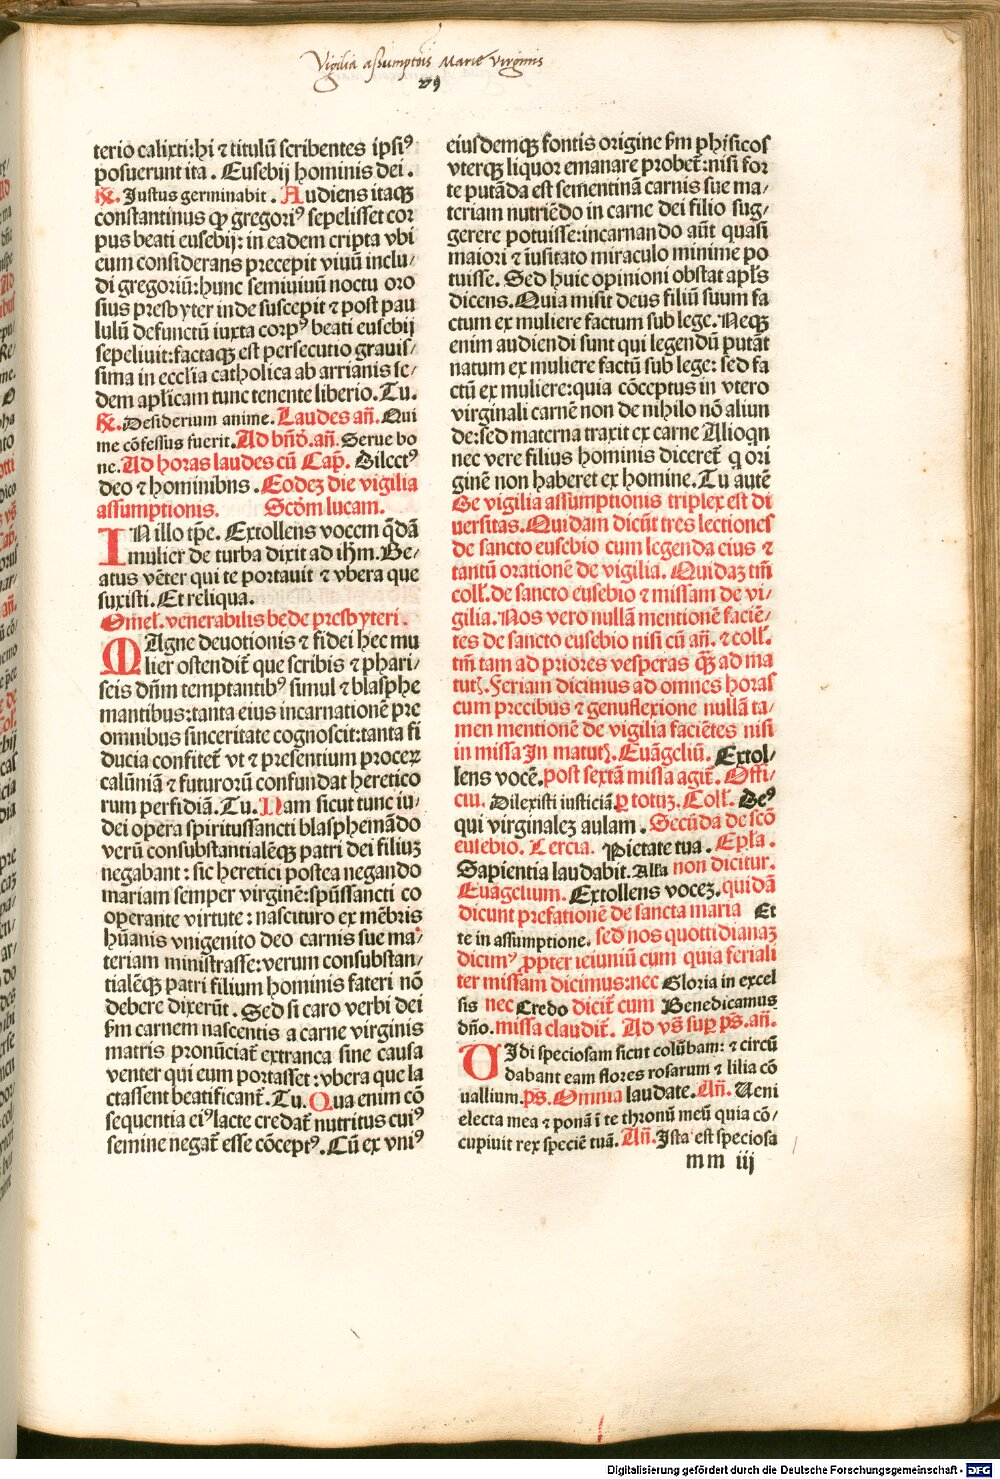 Vigilia assumptõis Marie virginis
279
terio calixti:hi ⁊ titulũ scribentes ipsiꝰ
posuerunt ita . Eusebij hominis dei .
℟. Justus germinabit . Audiens itaqꝫ
constantinus ꝙ gregoriꝰ sepelisset cor
pus beati eusebij: in eadem cripta vbi
eum considerans precepit viuũ inclu⸗
di gregoriũ:hunc semiuiuũ noctu oro
sius presbyter inde suscepit ⁊ post pau
lulũ defunctũ iuxta corpꝰ beati eusebij
sepeliuit:factaqꝫ est persecutio grauis⸗
sima in ecclia catholica ab arrianis se⸗
dem aplicam tunc tenente liberio. Tu.
℟. Desiderium anime. Laudes añ. Qui
me cõfessus fuerit. Ad bñd̄. añ. Serue bo
ne. Ad horas laudes cũ Cap̄. Dilectꝰ
deo ⁊ hominibns . Eodeꝫ die vigilia
assumptionis. Scd̄m lucam.
IN illo tp̄e. Extollens vocem q̄dã
mulier de turba dixit ad ih̄m. Be⸗
atus vẽter qui te portauit ⁊ vbera que
suxisti. Et reliqua.
Omel. venerabilis bede presbyteri .
MAgne deuotionis ⁊ fidei hec mu
lier ostendit̃ que scribis ⁊ phari⸗
seis dñm temptantibꝰ simul ⁊ blasphe
mantibus:tanta eius incarnationẽ pre
omnibus sinceritate cognoscit:tanta fi
ducia confitet̃ vt ⁊ presentium proceꝝ
calũniã ⁊ futurorũ confundat heretico
rum perfidiã. Tu. Nam sicut tunc iu⸗
dei opera spiritussancti blasphemãdo
verũ consubstantialẽqꝫ patri dei filiuꝫ
negabant : sic heretici postea negando
mariam semper virginẽ:sp̃ussancti co
operante virtute : nascituro ex mẽbris
hũanis vnigenito deo carnis sue ma⸗
teriam ministrasse:verum consubstan⸗
tialẽqꝫ patri filium hominis fateri nõ
debere dixerũt. Sed si caro verbi dei
ẜm carnem nascentis a carne virginis
matris pronũciat̃ extranea sine causa
venter qui eum portasset : vbera que la
ctassent beatificant̃. Tu. Qua enim cõ
sequentia eiꝰ lacte credat̃ nutritus cuiꝰ
semine negat̃ esse cõceptꝰ. Cũ ex vniꝰ
eiusdemqꝫ fontis origine ẜm phisicos
vterqꝫ liquor emanare probet̃:nisi for
te putãda est sementinã carnis sue ma⸗
teriam nutriẽdo in carne dei filio sug⸗
gerere potuisse:incarnando aũt quasi
maiori ⁊ iusitato miraculo minime po
tuisse. Sed huic opinioni obstat apl̄s
dicens. Quia misit deus filiũ suum fa
ctum ex muliere factum sub lege. Neqꝫ
enim audiendi sunt qui legendũ putãt
natum ex muliere factũ sub lege: sed fa
ctũ ex muliere:quia cõceptus in vtero
virginali carnẽ non de nihilo nõ aliun
de:sed materna traxit ex carne Alioqn
nec vere filius hominis diceret̃ q ori
ginẽ non haberet ex homine. Tu autẽ
De vigilia assumptionis triplex est di
uersitas. Quidam dicũt tres lectiones
de sancto eusebio cum legenda eius ⁊
tantũ orationẽ de vigilia. Quidaꝫ tm̃
coll̄. de sancto eusebio ⁊ missam de vi⸗
gilia. Nos vero nullã mentionẽ faciẽ⸗
tes de sancto eusebio nisi cũ añ. ⁊ coll̄.
tm̃ tam ad priores vesperas q̄ꝫ ad ma
tut̃. Feriam dicimus ad omnes horas
cum precibus ⁊ genuflexione nullã ta⸗
men mentionẽ de vigilia faciẽtes nisi
in missa In matut̃. Euãgeliũ. Extol⸗
lens vocẽ. post sextã missa agit̃. Offi⸗
ciũ. Dilexisti iusticiã. ꝑ totuꝫ. Coll̄. Deꝰ
qui virginaleꝫ aulam . Secũda de scõ
eusebio. Tercia. Pietate tua . Epl̄a .
Sapientia laudabit. Alla non dicitur.
Euãgelium. Extollens voceꝫ. quidã
dicunt prefationẽ de sancta maria Et
te in assumptione. sed nos quottidianaꝫ
dicimꝰ ꝓpter ieiuniũ cum quia feriali
ter missam dicimus:nec Gloria in excel
sis nec Credo dicit̃ cum Benedicamus
dño. missa claudit̃. Ad vs̄ sup̄ ps̄. añ.
VIdi speciosam sicut colũbam: ⁊ circũ
dabant eam flores rosarum ⁊ lilia cõ
uallium. ps̄. Omnia laudate. Añ. Veni
electa mea ⁊ ponã ĩ te thronũ meũ quia cõ⸗
cupiuit rex speciẽ tuã. Añ. Ista est speciosa
mm iij
Digitalisierung gefördert durch die Deutsche Forschungsgemeinschaft - DFG